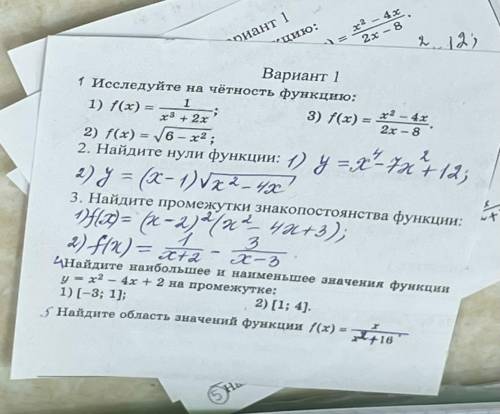 риант 1
цию:
) = x² − 4x / 2x − 8 .
2 . . 12;
Вариант 1
1 Исследуйте на чётность функцию:
1) f(x) = 1 / x³ + 2x ; 3) f(x) = x² − 4x / 2x − 8 .
2) f(x) = √6 − x² ;
2. Найдите нули функции: 1) y = x⁴ − 7x² + 12;
2) y = (x − 1)√x² − 4x
3. Найдите промежутки знакопостоянства функции:
1) f(x) = (x − 2)² (x² − 4x + 3);
2) f(x) = 1 / x+2 − 3 / x−3 .
4 Найдите наибольшее и наименьшее значения функции
y = x² − 4x + 2 на промежутке:
1) [−3; 1]; 2) [1; 4].
5 Найдите область значений функции f(x) = x / x²+16 .
5 На